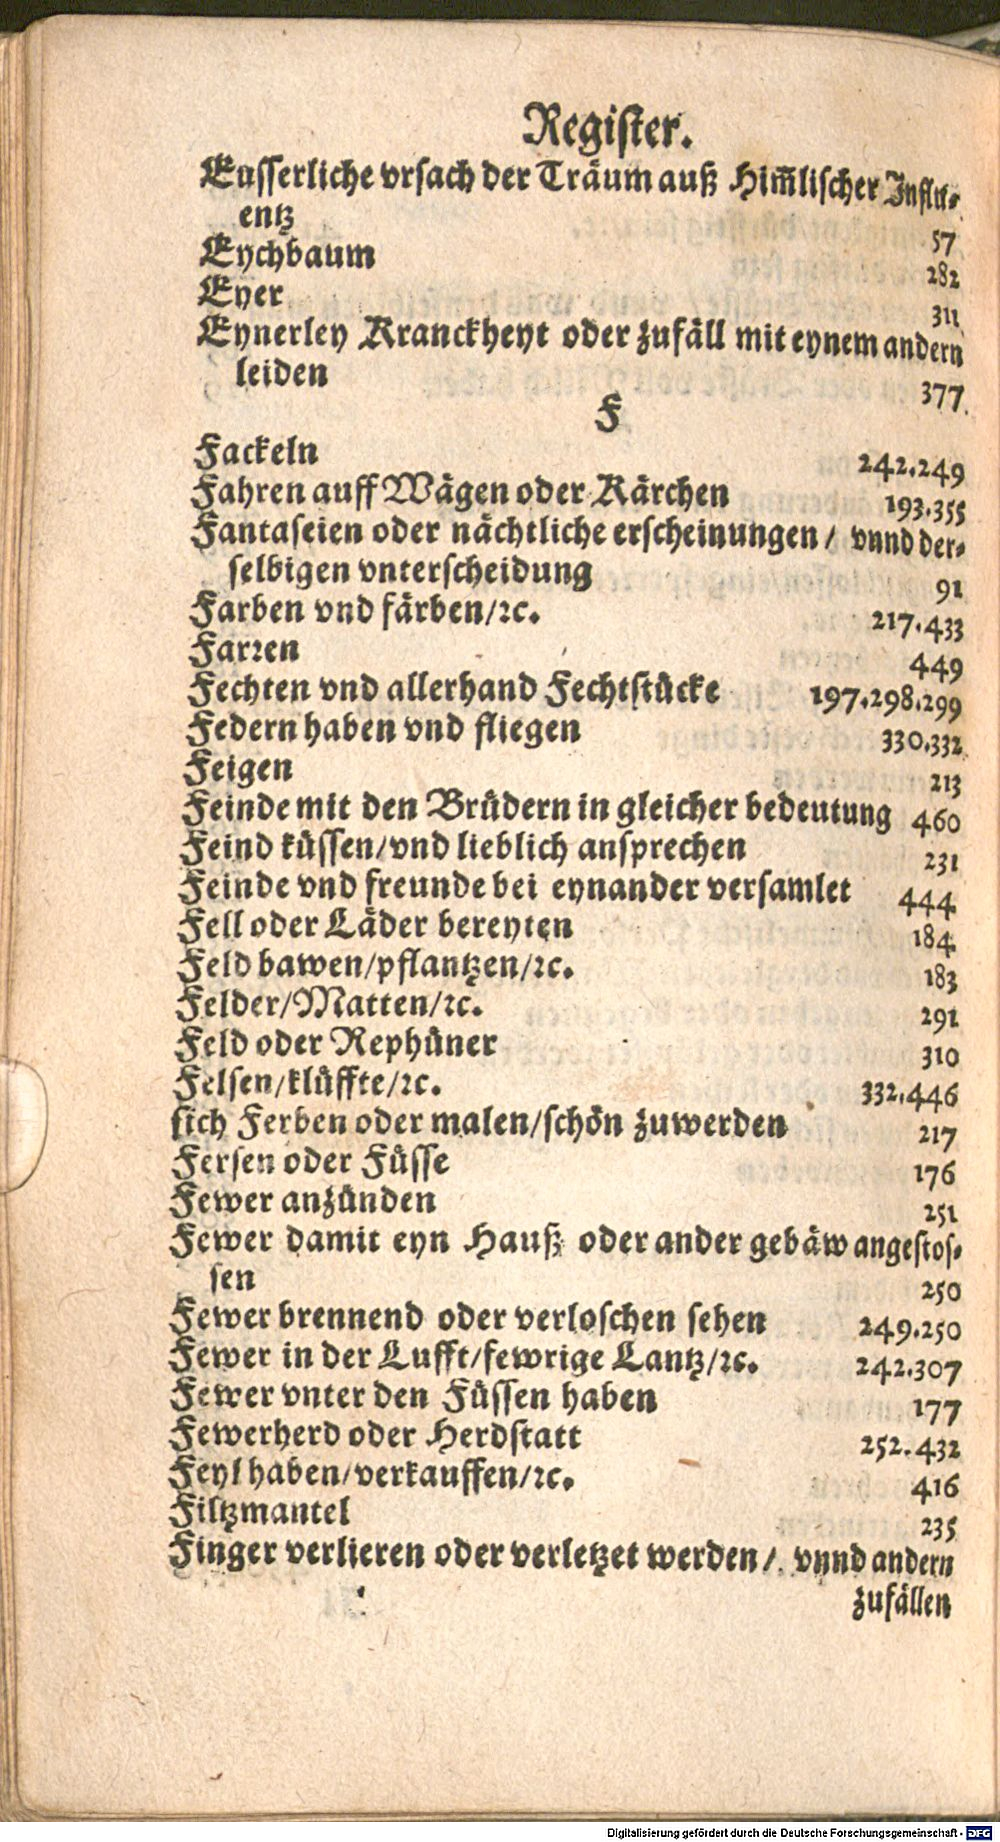 Register.
Eusserliche vrsach der Träum auß Him̃lischer Influ-
entz 57
Eychbaum 282
Eyer 311
Eynerley Kranckheyt oder zufäll mit eynem andern
leiden 377
F
Fackeln 242.249
Fahren auff Wägen oder Kärchen 193.355
Fantaseien oder nächtliche erscheinungen / vnnd der-
selbigen vnterscheidung 91
Farben vnd färben/ꝛc. 217.433
Farꝛen 449
Fechten vnd allerhand Fechtstücke 197.298.299
Federn haben vnd fliegen 330.332
Feigen 213
Feinde mit den Brüdern in gleicher bedeutung 460
Feind küssen/vnd lieblich ansprechen 231
Feinde vnd freunde bei eynander versamlet 444
Fell oder Läder bereyten 184
Feld bawen/pflantzen/ꝛc. 183
Felder/Matten/ꝛc. 291
Feld oder Rephüner 310
Felsen/klüffte/ꝛc. 332.446
sich Ferben oder malen/schön zuwerden 217
Fersen oder Füsse 176
Fewer anzünden 251
Fewer damit eyn Hauß oder ander gebäw angestos-
sen 250
Fewer brennend oder verloschen sehen 249.250
Fewer in der Lufft/fewrige Lantz/ꝛc. 242.307
Fewer vnter den Füssen haben 177
Fewerherd oder Herdstatt 252.432
Feyl haben/verkauffen/ꝛc. 416
Filtzmantel 235
Finger verlieren oder verletzet werden/ vnnd andern
zufällen
Digitalisierung gefördert durch die Deutsche Forschungsgemeinschaft - DFG